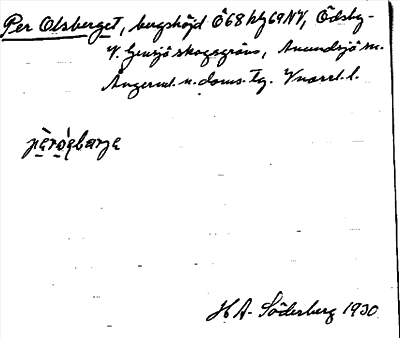 Per Olsberget, bergshöjd Ö68 h/g69NV, Ödsby-
V. Gensjö skogsgräns, Anundsjö sn.
Ångerml. n. doms. tg. Vnorrl. l.
H A. Söderberg 1930